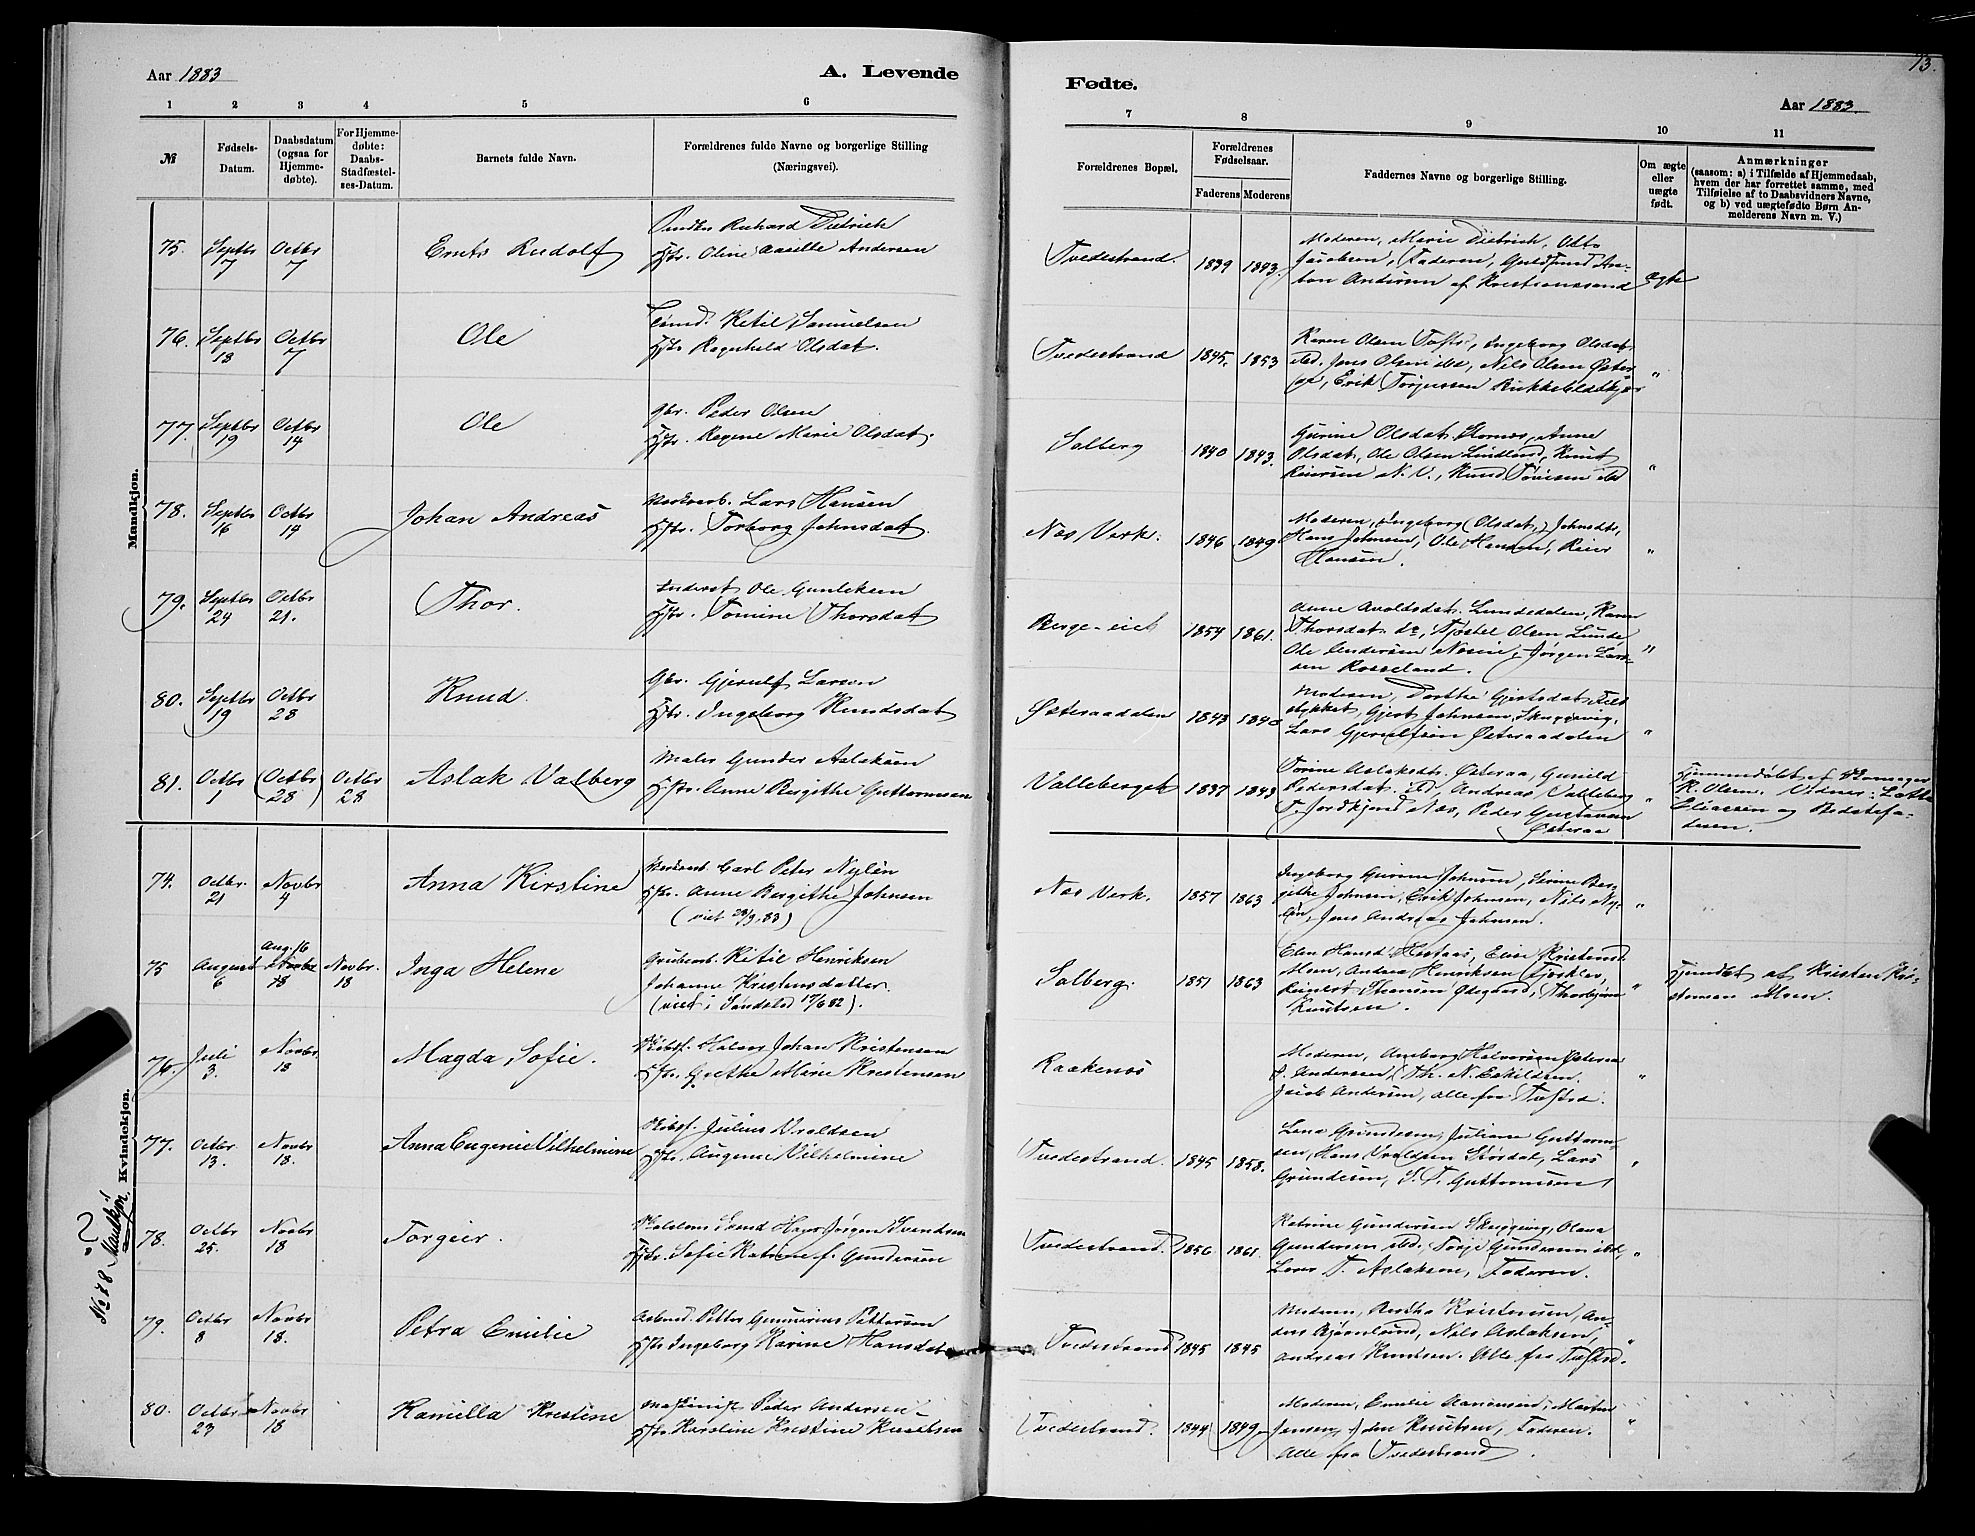 Aar 1883
A. Levende
1 2 3 4 5 6
№
Fødsels-
Datum.
Daabsdatum
(ogsaa for
Hjemme-
døbte).
For Hjemme-
døbte:
Daabs-
Stadfæstel-
ses-Datum.
Barnets fulde Navn.
Forældrenes fulde Navne og borgerlige Stilling
(Næringsvei).
Mandkjøn.
75. Septbr 7 Octbr 7 Rudolf
Richard Dietrich
Hstr. Oline Andersen
76. Septbr 13 Octbr 7 Ole
Ketil Samuelsen
Hstr Ragnhild Olsdat.
77. Septbr 19 Octbr 14 Ole
Gbr. Peder Olsen
Hstr. Regine Marie Olsdat.
78. Septbr 16 Octbr 14 Johan Andreas
Lars Hansen
Hstr. Torborg Johnsdat.
79. Septbr 24 Octbr 21. Thor.
Ole Gunleksen
Hstr. Tomine Thorsdat
80. Septbr 19 Octbr 28 Knud.
Gbr. Gjerulf Larsen
Hstr. Ingeborg Knudsdat
81. Octbr 1 (Octbr 28) Octbr 28 Aslak Valberg
Maler Gunder Aslaksen
Hstr. Anne Birgithe Guttormsen
Kvindekjøn.
74. Octbr. 21 Novbr 4 Anna Kirstine
Carl Peter Nylén
Hstr. Anne Bergithe Johnsen
(viet 23/9, 83)
75 August 6 Aug. 16 Novbr 18 Novbr. 18 Inga Helene
Grubearb. Ketil Henriksen
Johanne Kristensdatter.
(viet i Søndeled 17/6 82).
76. Juli 3. Novbr 18 Magda Sofie.
Skibsf. Johan Kristensen
Hstr. Grethe Marie Kristensen
77. Octbr 13. Novbr 18. Anna Eugenie Vilhelmine
Skibsf. Julius Vroldsen
Hstr. Augene Vilhelmine
№ 78 Mandkjøn ?
78. Octbr 25. Novbr 18 Torgeir.
Jørgen Svendsen
Hstr. Sofie Katrine f. Gundersen
79. Octbr 8 Novbr 18. Petra Emilie
Arbmd. Petter Gunnarius Pettersen
Hstr Ingeborg Karine Hansdat
80. Octbr 23 Novbr 18 Kamilla Kristine
Maskinist Peder Andersen
Hstr Karoline Kristine Knudsen
Fødte.
73.
Aar 1883
7 8 9 10 11
Forældrenes Bopæl.
Forældrenes
Fødselsaar.
Faderens Moderens
Faddernes Navne og borgerlige Stilling.
Om ægte
eller
uægte
født.
Anmærkninger
(saasom: a) i Tilfælde af Hjemmedaab,
hvem der har forrettet samme, med
Tilføielse af to Daabsvidners Navne,
og b) ved uægtefødte Børn An-
melderens Navn m. V.)
Tvedestrand. 1839 1843.
Moderen, Marie Dietrich, Otto
Jacobsen, Faderen, An-
ton Andersen af Kristianssand ægte
Tvedestrand 1845. 1853
Karen Olsen Tofte, Ingeborg Olsdat.
Jens Olsen Nils Olsen
Erik Torjussen "
Solberg 1840 1843.
Gurine Olsdat. Anne
Olsdat, Ole Olsen Lindland, Knut
Reiersen N. V., Knud Tønesen "
Nes Verk. 1846 1849
Moderen, Ingeborg Olsdat, Johnsdt,
Hans Johnsen, Ole Hansen, Reier
Hansen. "
Berge-eiet 1854 1861.
Anne Avoldsdat. Lundedalen, Karen
Thorsdat. do, Tjøstel Olsen Lunde
Ole Andersen Jørgen Lar-
sen Rosseland. "
Østeraadalen 1843 1840
Moderen, Dorthe Gjertsdat
Gjert Johnsen, Skuggevig,
Lars Gjerulfsen Østeraadalen "
Valleberget 1837 1843
Torine Aslaksdt. Østeraa, Gunild
Pedersdat. Andreas Valleberg
Nes, Peder Gustavsen
Østeraa "
Hjemmedøbt af
K. Olsen. Vidner:
Eliassen og Bedstefa-
deren.
Nes Verk. 1857 1863
Ingeborg Gurine Johnsen, Sirine Ber-
githe Johnsen, Erik Johnsen, Nils Ny-
lén, Jens Andreas Johnsen. "
Solberg. 1851 1863
Elen Elise Kristensd.
Moen, Andrea Henriksen
Reinert Stiansen Ødegaard, Thorbjørn
Knutsen. "
Hjemdøbt af Kristen Kri-
stensen Moen.
Raakenes
Moderen, Halvorsen Østeraa
J. Andersen, Th. N. Eskildsen.
Jacob Andersen, alle fra "
Tvedestrand. 1845 1858.
Lena Gundersen, Juliane Guttorm-
sen, Hans Vroldsen Lars
Gundersen, S. T. Guttormsen "
Tvedestrand. 1856 1861.
Katrine Gundersen Skuggevig, Olava
Gundersen Torje Gundersen
T. Aslaksen, Faderen. "
Tvedestrand 1845 1845
Moderen, Kristensen, An-
ders Bjørnlund, Nils Aslaksen,
Andreas Knudsen. Alle fra "
Tvedestrand. 1844 1849
Moderen, Emilie Martin
Jensen, Knutsen, Faderen.
Alle fra Tvedestrand. "